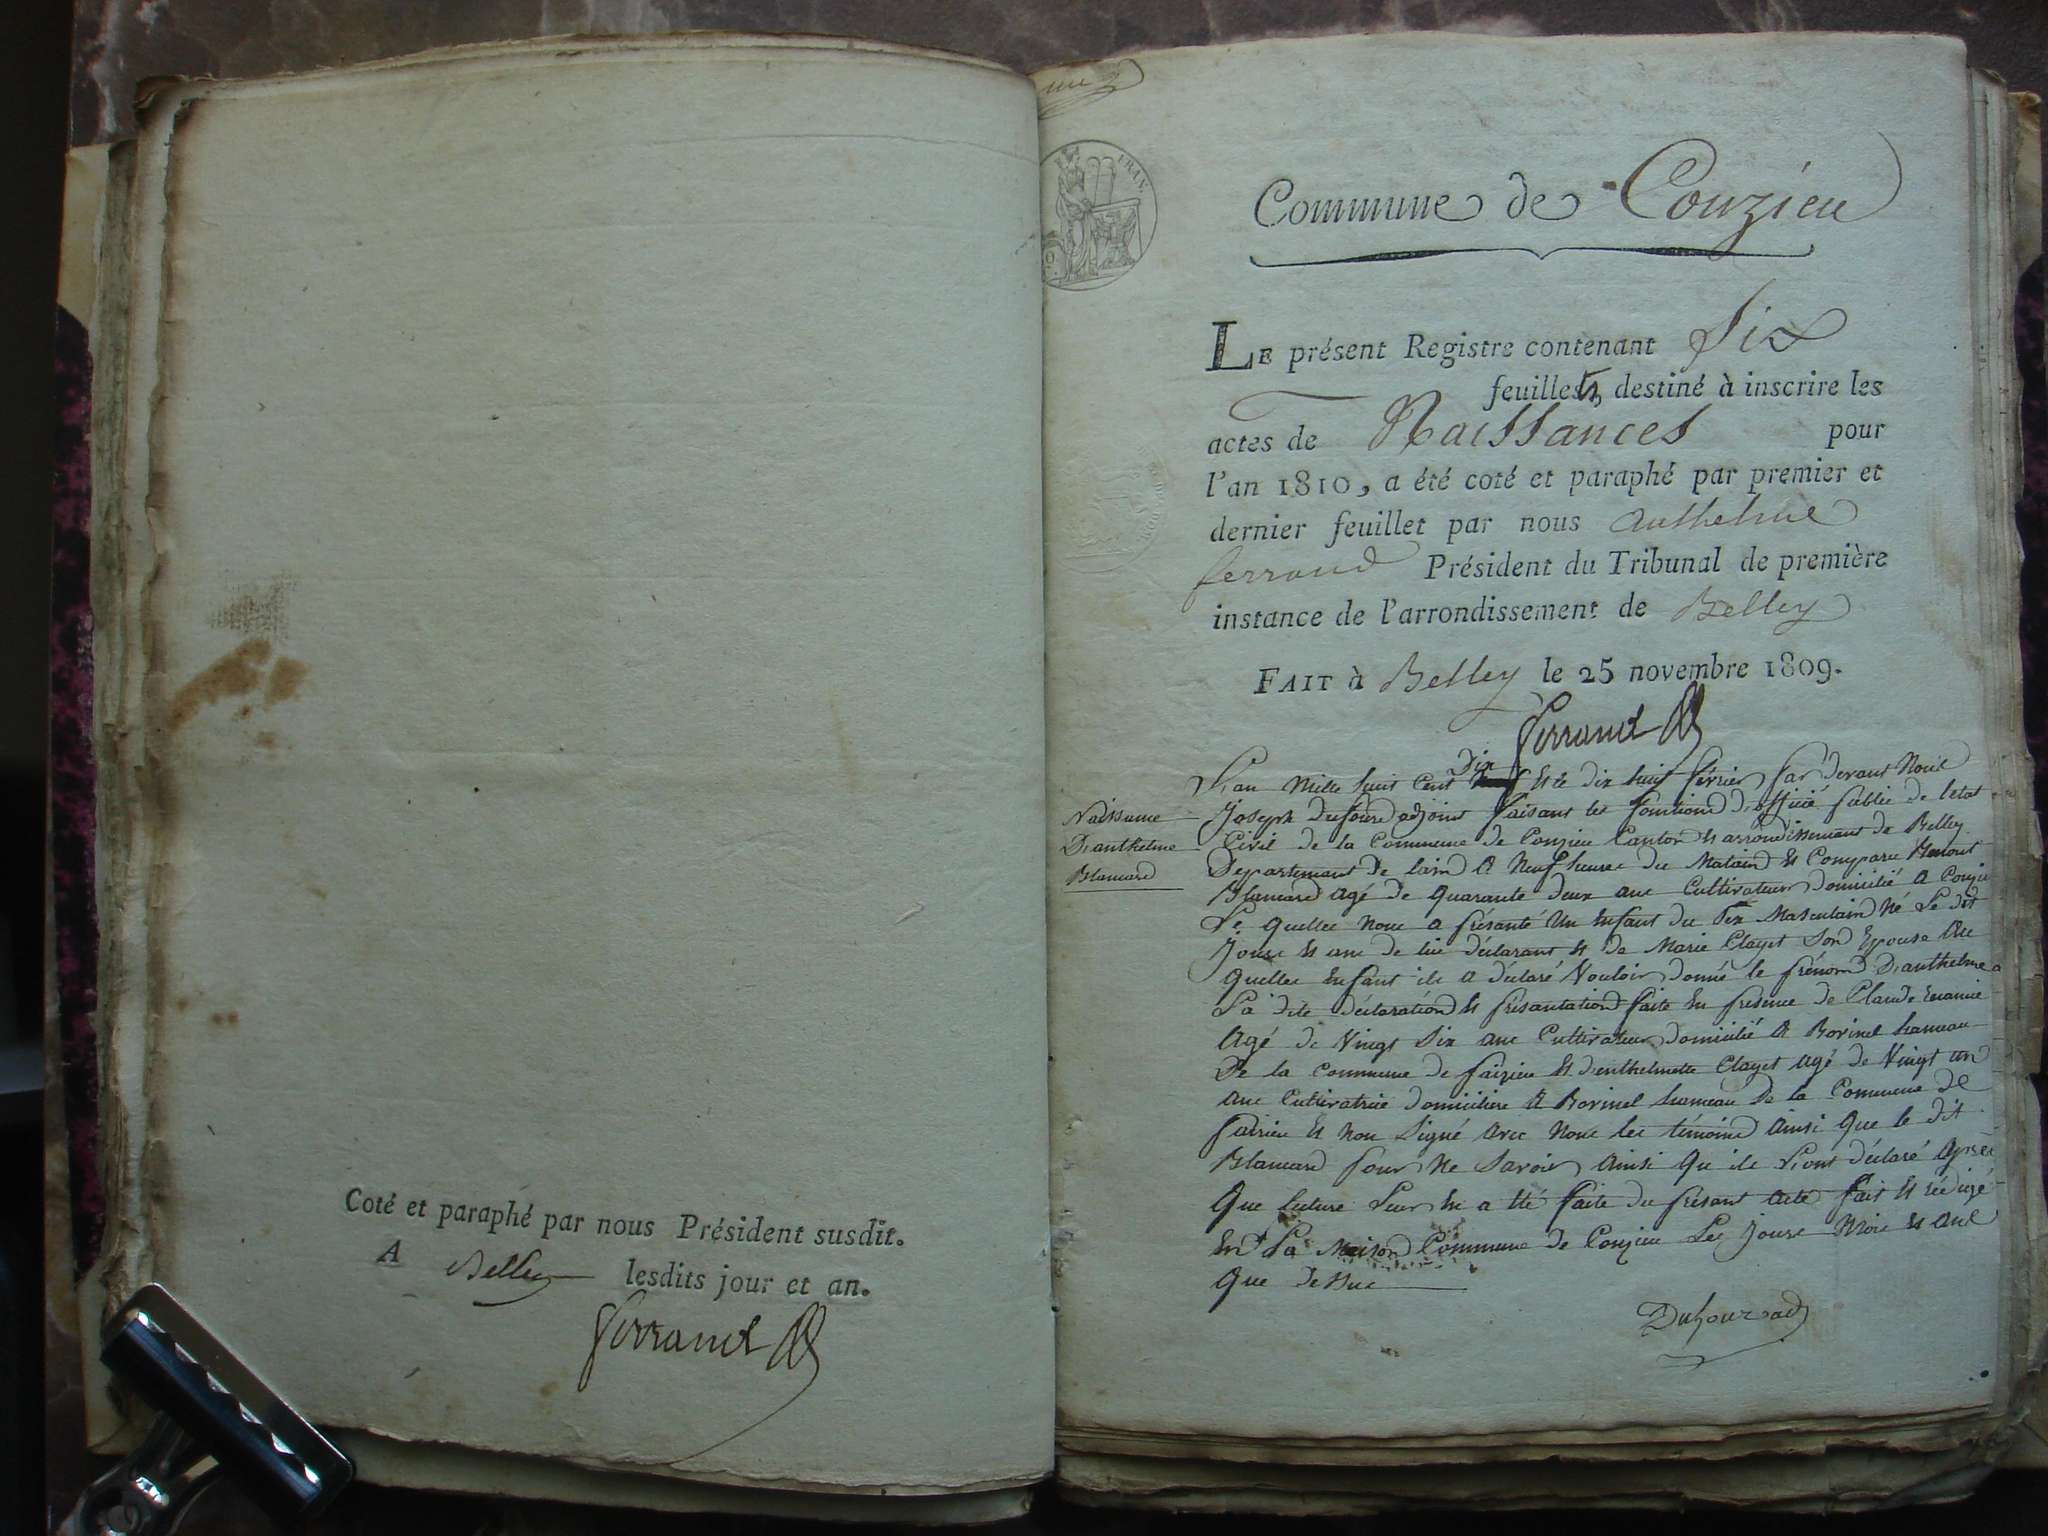 Coté et paraphé par nous Président susdit.
A Belley lesdits jour et an.
Ferrand
FRAN
Commune de Conzieu
LE présent Registre contenant Six
feuillets, destiné à inscrire les
actes de Naissances pour
l'an 1810, a été coté et paraphé par premier et
dernier feuillet par nous Anthelme
ferrand Président du Tribunal de première
instance de l'arrondissement de Belley
FAIT à Belley le 25 novembre 1809.
Ferrand
Naissance
D'anthelme
Blancard
L'an Mille huit Cent Dix Et le dix huit février par devant Nous
Joseph dufour adjoint faisant les fonctions d'officié publie de letat
Civil de la Commune de Conzieu Canton et arrondissement de Belley
Departement De lain a Neuf heures du Matain Et Comparu Benoit
Blancard agé de quarante deux ans Cultivateur Domicilié a Conzieu
Le quelle nous a présanté Un Enfant du Sex Masculain Né Le dit
Jours Et ans de lui déclarant Et de Marie Clayet Son Epouse Au
quelle Enfant il a déclaré Vouloir donné le prénom D'anthelme
La dite déclaration Et présantation faite En présence de Claude
Agé de Vingt Six ans Cultivateur Domicilié a Borinel hameau
De la Commune de Clayet agé de Vingt un
ans Cultivatrice domiciliere a Borinel hameau De la Commune de
Et Non Signé avec Nous les témoins Ainsi Que le dit
Blancard pour Ne Savoir Ainsi Qu'ils L'ont déclaré Apres
Que lecture Leur En a été faite du présant acte fait Et rédigé
En La Maison Commune de Conzieu Les Jours Mois Et Ans
Que Dessus
Dufour ad